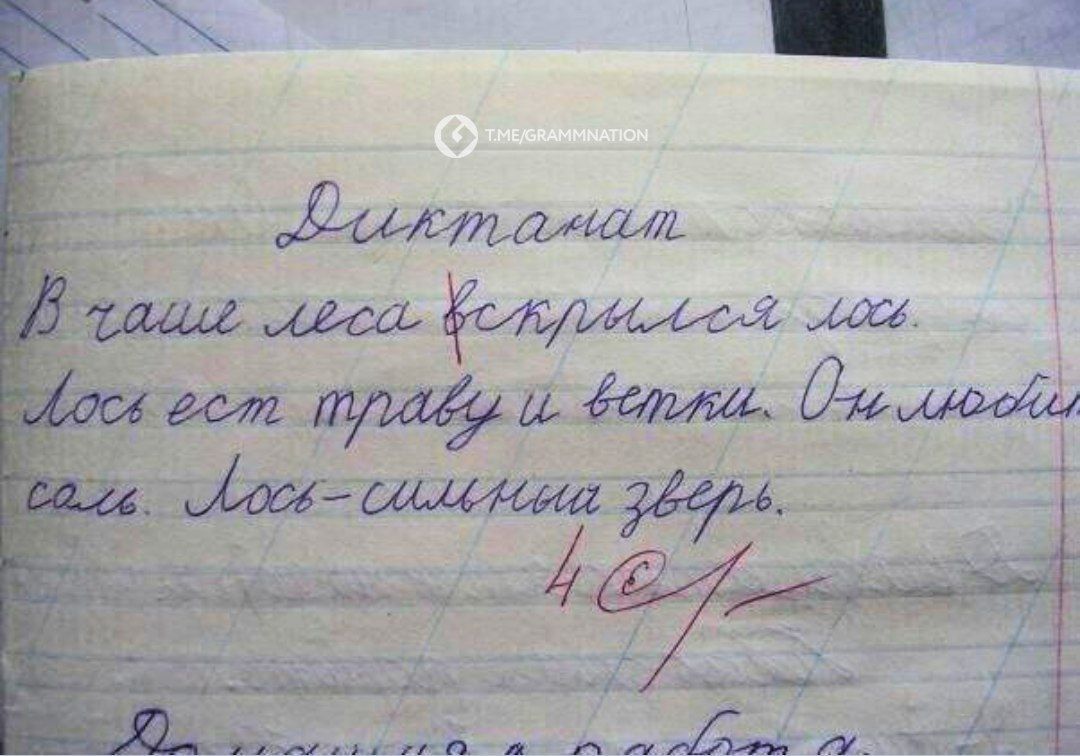 T.ME/GRAMMNATION
Диктанат
В чаше леса вскрылся лось.
Лось ест траву и ветки. Он любит
соль. Лось - сильный зверь.
4
Домашняя работа.